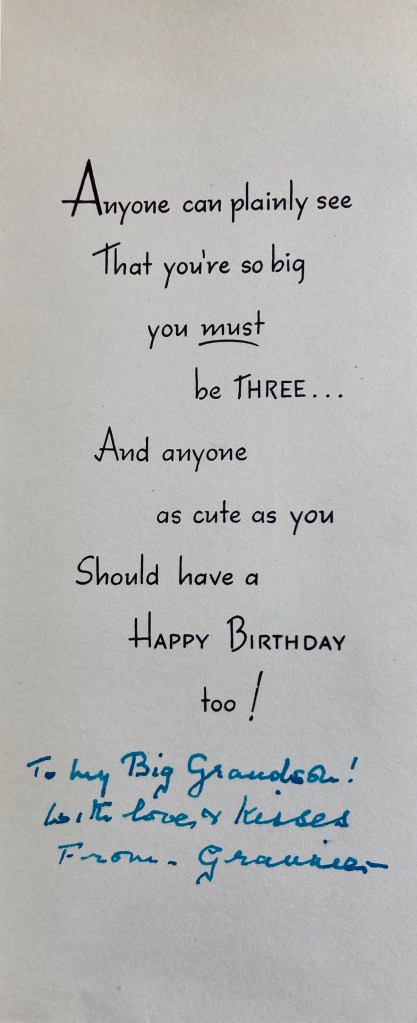 Anyone can plainly see
That you're so big
you must
be THREE...
And anyone
as cute as you
Should have a
HAPPY BIRTHDAY
too!
To my Big Grandson!
with love & Kisses
From - Grannie -